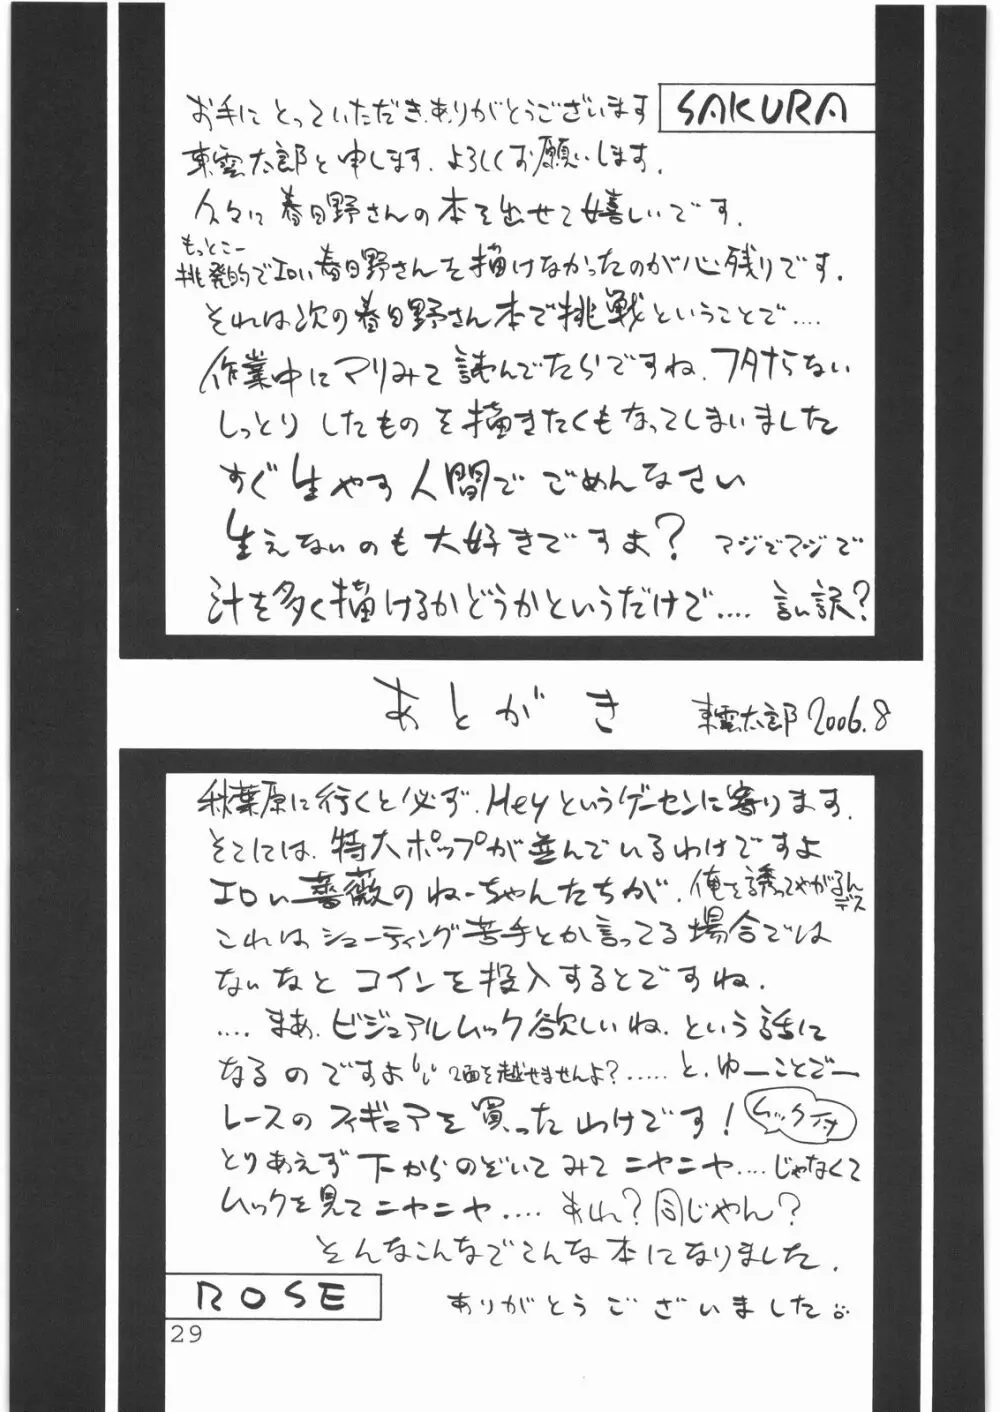 SAKURA
お手にとっていただき、ありがとうございます
東雲太郎と申します、よろしくお願いします。
久々に春日野さんの本を出せて嬉しいです。
もっとこー
挑発的でエロい春日野さんを描けなかったのが心残りです。
それは次の春日野さん本で挑戦ということで....
作業中にマリみて読んでたらですね、フタナらない
しっとりしたものを描きたくもなってしまいました
すぐ生やす人間でごめんなさい
生えないのも大好きですよ？ マジでマジで
汁を多く描けるかどうかというだけで.... 言い訳？
あとがき 東雲太郎 2006.8
秋葉原に行くと必ず、Heyというゲーセンに寄ります。
そこには、特大ポップが並んでいるわけですよ
エロい薔薇のねーちゃんたちが、俺を誘ってやがるん
デス
これはシューティング苦手とか言ってる場合では
ないなとコインを投入するとですね、
....まあ、ビジュアルムック欲しいね、という話に
なるのですよ 2面を越せませんよ？.....と、ゆーことでー
レースのフィギュアを買ったわけです！
ムック付
とりあえず下からのぞいてみてニヤニヤ....じゃなくて
ムックを見てニヤニヤ.... あれ？同じやん？
そんなこんなでこんな本になりました。
ROSE
ありがとうございました。
29